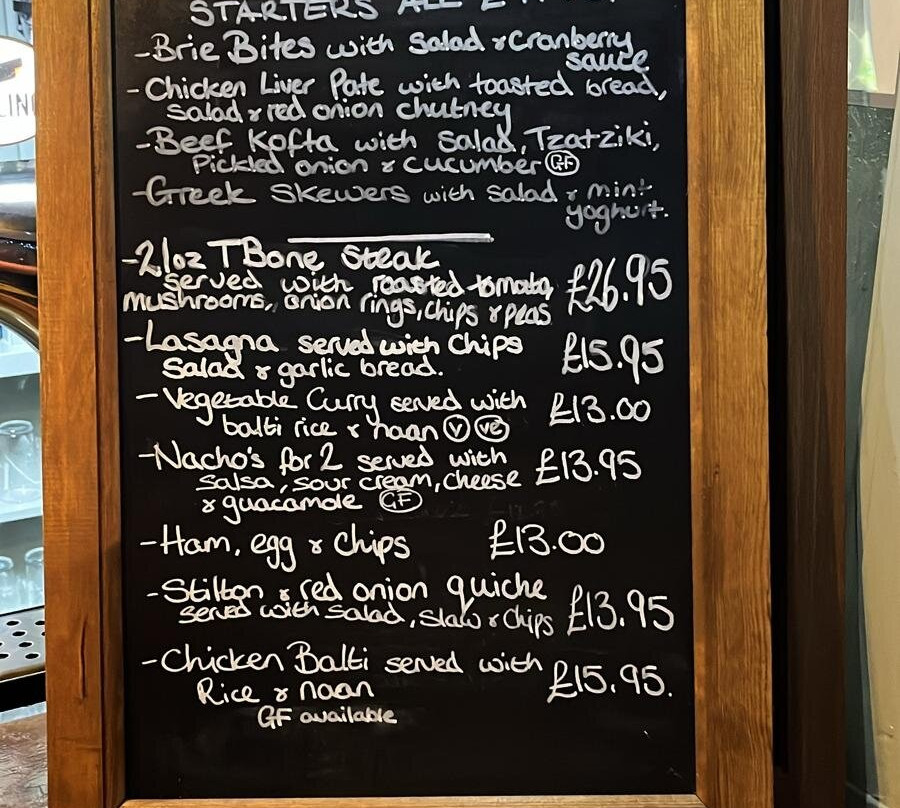 STARTERS ALL
-Brie Bites with Salad & Cranberry
sauce
-Chicken Liver Pate with toasted bread,
salad & red onion chutney
-Beef Kofta with Salad, Tzatziki,
Pickled onion & cucumber GF
-Greek Skewers with salad & mint
yoghurt.
-21oz TBone Steak
served with roasted tomato, £26.95
mushrooms, onion rings, chips & peas
-Lasagna served with Chips £15.95
Salad & garlic bread.
-Vegetable Curry served with £13.00
balti rice & naan V ve
-Nacho's for 2 served with £13.95
Salsa, sour cream, cheese
& guacamole GF
-Ham, egg & Chips £13.00
-Stilton & red onion quiche
served with salad, slaw & Chips £13.95
-Chicken Balti served with £15.95.
Rice & naan
GF available